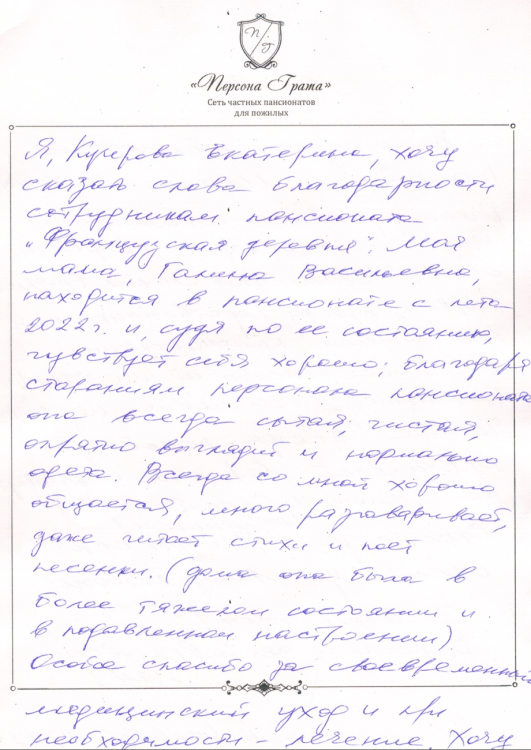 П/г
«Персона Грата»
Сеть частных пансионатов
для пожилых
Я, Кучерова Екатерина, хочу
сказать слова благодарности
сотрудникам пансионата
„Французская деревня". Моя
мама, Галина Васильевна,
находится в пансионате с лета
2022 г. и, судя по ее состоянию,
чувствует себя хорошо; благодаря
стараниям персонала пансионата
она всегда сытая, чистая,
опрятно выглядит и нормально
одета. Всегда со мной хорошо
общается, много разговаривает,
даже читает стихи и поет
песенки. (дома она была в
более тяжелом состоянии и
в подавленном настроении)
Особое спасибо за своевременный
медицинский уход и при
необходимости - лечение. Хочу